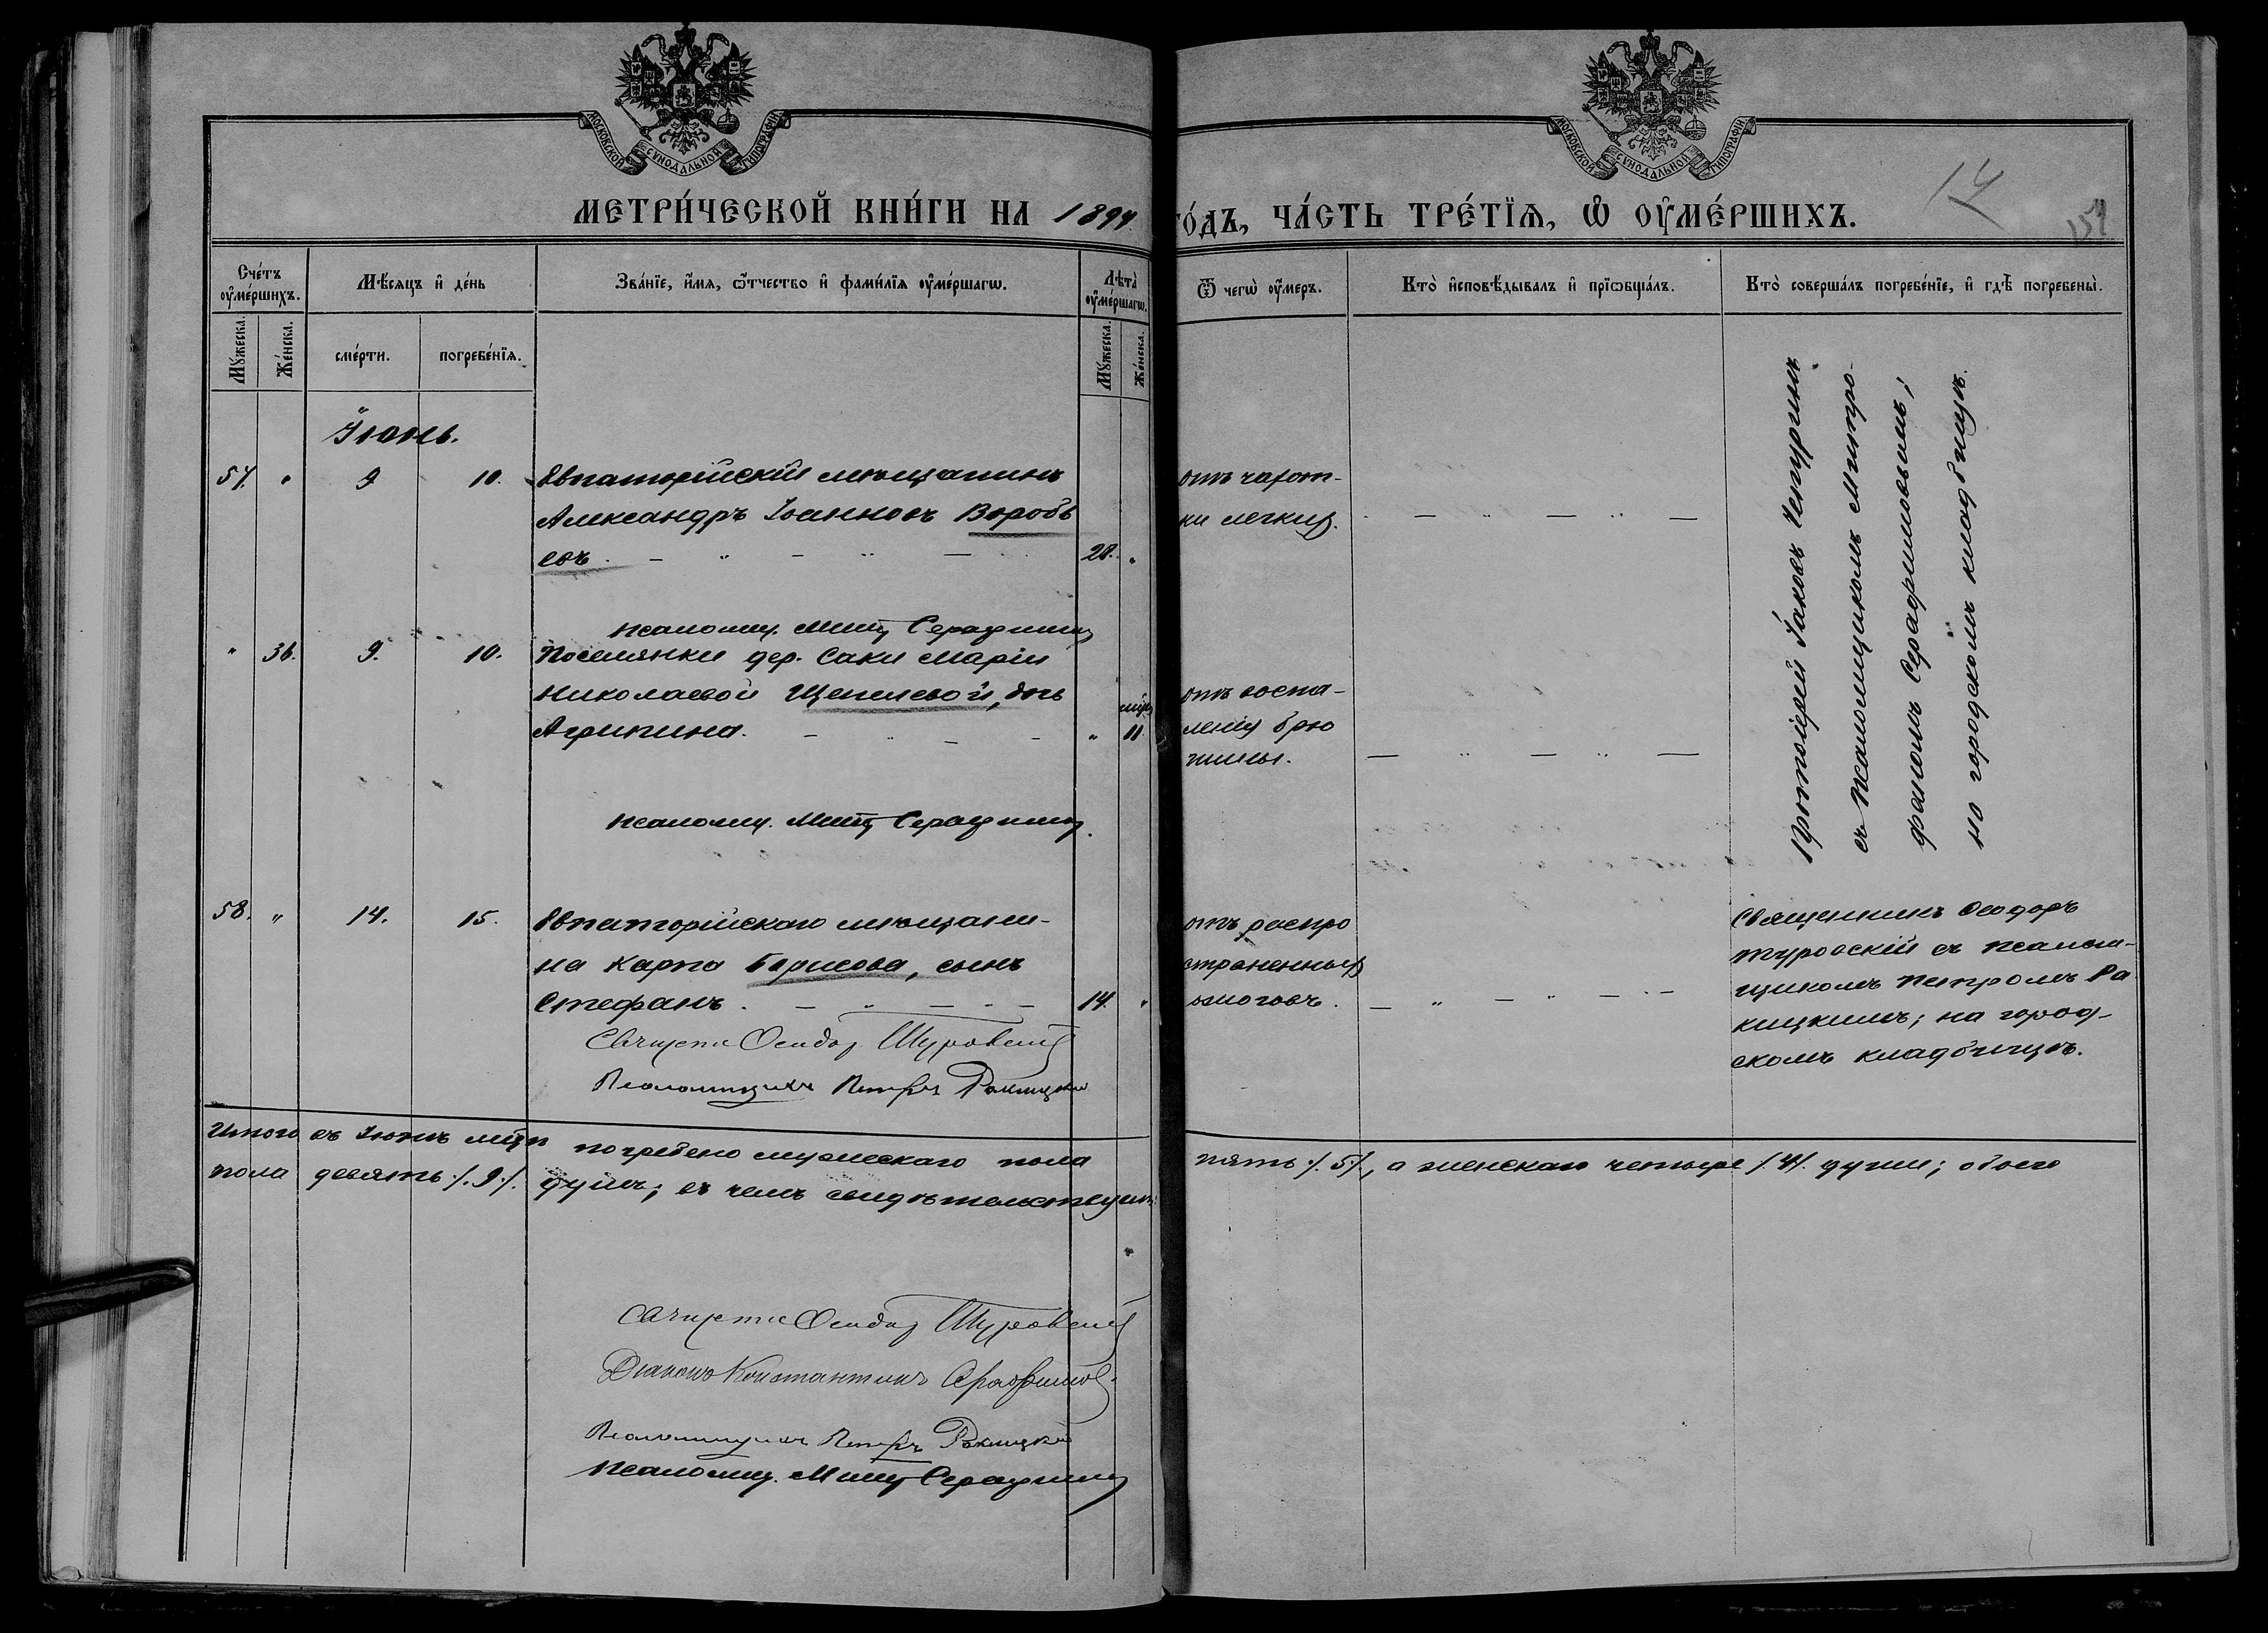 МОСКОВСКОЙ СѴНОДАЛЬНОЙ ТИПОГРАФІИ
МОСКОВСКОЙ СѴНОДАЛЬНОЙ ТИПОГРАФІИ
МЕТРИ́ЧЕСКОЙ КНИ́ГИ НА 1894
ГО́ДЪ, ЧА́СТЬ ТРЕ́ТЇѦ, Ѡ ОУ҆МЕ́РШИХЪ.
Сче́тъ оу҆ме́ршихъ.
Мѣ́сяцъ и҆ де́нь
Зва́нїе, и҆́мя, ѻ҆́тчество и҆ фами́лїя оу҆ме́ршагѡ.
Лѣта̀ оу҆ме́ршагѡ.
Ѿ чегѡ̀ оу҆́меръ.
Кто̀ и҆сповѣ́дывалъ и҆ прїѡбща́лъ.
Кто̀ соверша́лъ погребе́нїе, и҆ гдѣ̀ погребены̀.
Мꙋ́жеска.
Же́нска.
сме́рти.
погребе́нїя.
Мꙋ́жеска.
Же́нска.
Іюнь.
57. " 9 10. Евпаторійскій мѣщанинъ
Александръ Іоанновъ Вороб
евъ. 28. "
отъ чахот-
ки легкихъ.
Протоіерей Іаковъ Чепуринъ
съ псаломщикомъ Митро-
фаномъ Серафимовымъ;
на городскомъ кладбищѣ.
псаломщ. Митр Серафимов
" 36. 9. 10. Поселянки дер. Саки Маріи
Николаевой Щепелевой, дочь
Агрипина. " 11 мѣс
отъ воспа-
ленія брю
шины.
псаломщ. Митр Серафимов
58. " 14. 15. Евпаторійскаго мѣщани-
на Карпа Борисова, сынъ
Стефанъ. 14. "
отъ распро
страненныхъ
ожоговъ.
Священникъ Ѳеодоръ
Туровскій съ псалом-
щикомъ Петромъ Ра
кицкимъ; на город-
скомъ кладбищѣ.
Священ Ѳеодор Туровскій
Псаломщикъ Петръ Ракицкій
Итого въ Іюнѣ мѣсяцѣ погребено мужескаго пола пять /.5/., а женскаго четыре /.4/. души; обоего
пола девять /.9./. душъ; въ чемъ свидѣтельствуемъ:
Священ Ѳеодор Туровскій
Діаконъ Константинъ Серафимовъ
Псаломщикъ Петръ Ракицкій
Псаломщ. Митр Серафимов